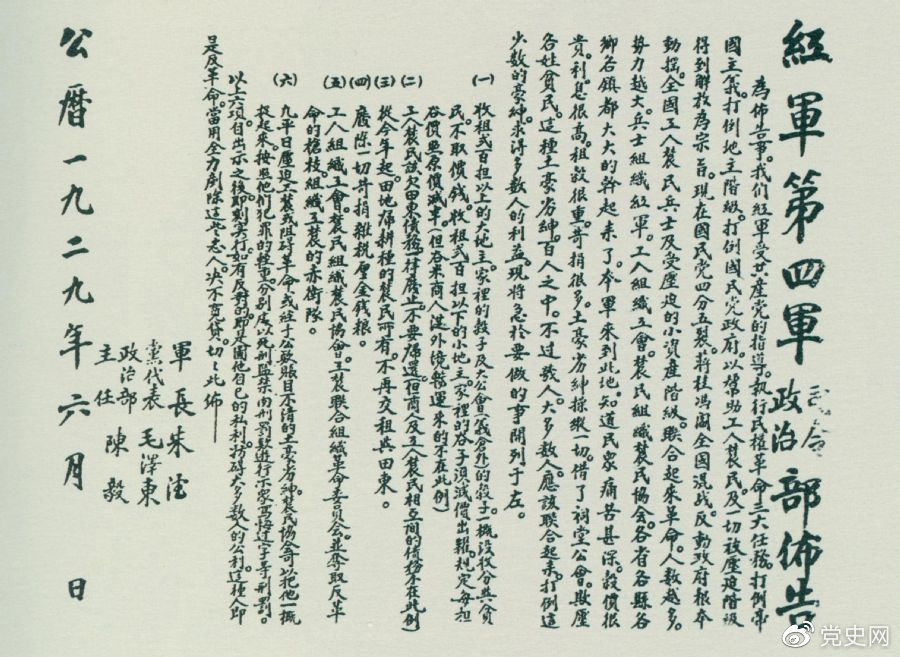 紅軍第四軍司令政治部佈告
為佈告事。我們紅軍受共產党的指導。執行民權革命三大任務。打倒帝
國主義。打倒地主階級。打倒國民党政府。以幫助工人農民及一切被壓迫階級
得到解放為宗旨。現在國民党四分五裂。蔣桂馮閻全國混战。反動政府根本
動搖。全國工人農民兵士及受壓迫的小資產階級。聯合起來革命。人數越多。
勢力越大。兵士組織紅軍。工人組織工會。農民組織農民協会。各省各縣各
鄉各鎮都大大的幹起來了。本軍來到此地。知道民眾痛苦甚深。穀價很
貴。利息很高。租穀很重。苛捐很多。土豪劣紳操縱一切。借了祠堂公會。欺壓
各姓貧民。這種土豪劣紳。百人之中。不过数人。大多数人應該联合起來。打倒這
少数的豪紳。求得多数人的利益。現將急於要做的事開列于左。
(一)收租弍百担以上的大地主。家裡的穀子及大公會(義倉外)的穀子。一概没收分與貧
民。不取價錢。收租弍百担以下的小地主。家裡的谷子没减價出糶。規定每担
谷價照原價减半。(但谷米商人從外境辦運來的不在此例)
(二)工人農民該欠田東債務。一律廢止。不要归還。(但商人及工人農民相互間的債務不在此例)
(三)從今年起。田地归耕種的農民所有。不再交租與田東。
(四)廢除一切苛捐雜稅厘金錢糧。
(五)工人組織工會。農民組織農民協會。工農联合組織革命委員会。並奪取反革
命的槍枝組織工農的赤衛隊。
(六)凡平日壓迫工農或阻碍革命或經手公款賬目不清的土豪劣紳。農民協会可以把他一概
捉起來。按照他们犯罪的輕重。分别處以死刑監禁肉刑罰款遊行示眾寫悔过字等刑罰。
以上六項自出示之後。即刻实行。如有反對的。即是圖他自己的私利。妨碍大多數人的公利。這種人即
是反革命。當用全力剷除這些惡人。决不寬貸。切切此佈
軍長 朱德
黨代表 毛澤東
政治部主任 陳毅
公曆一九二九年六月 日
党史网